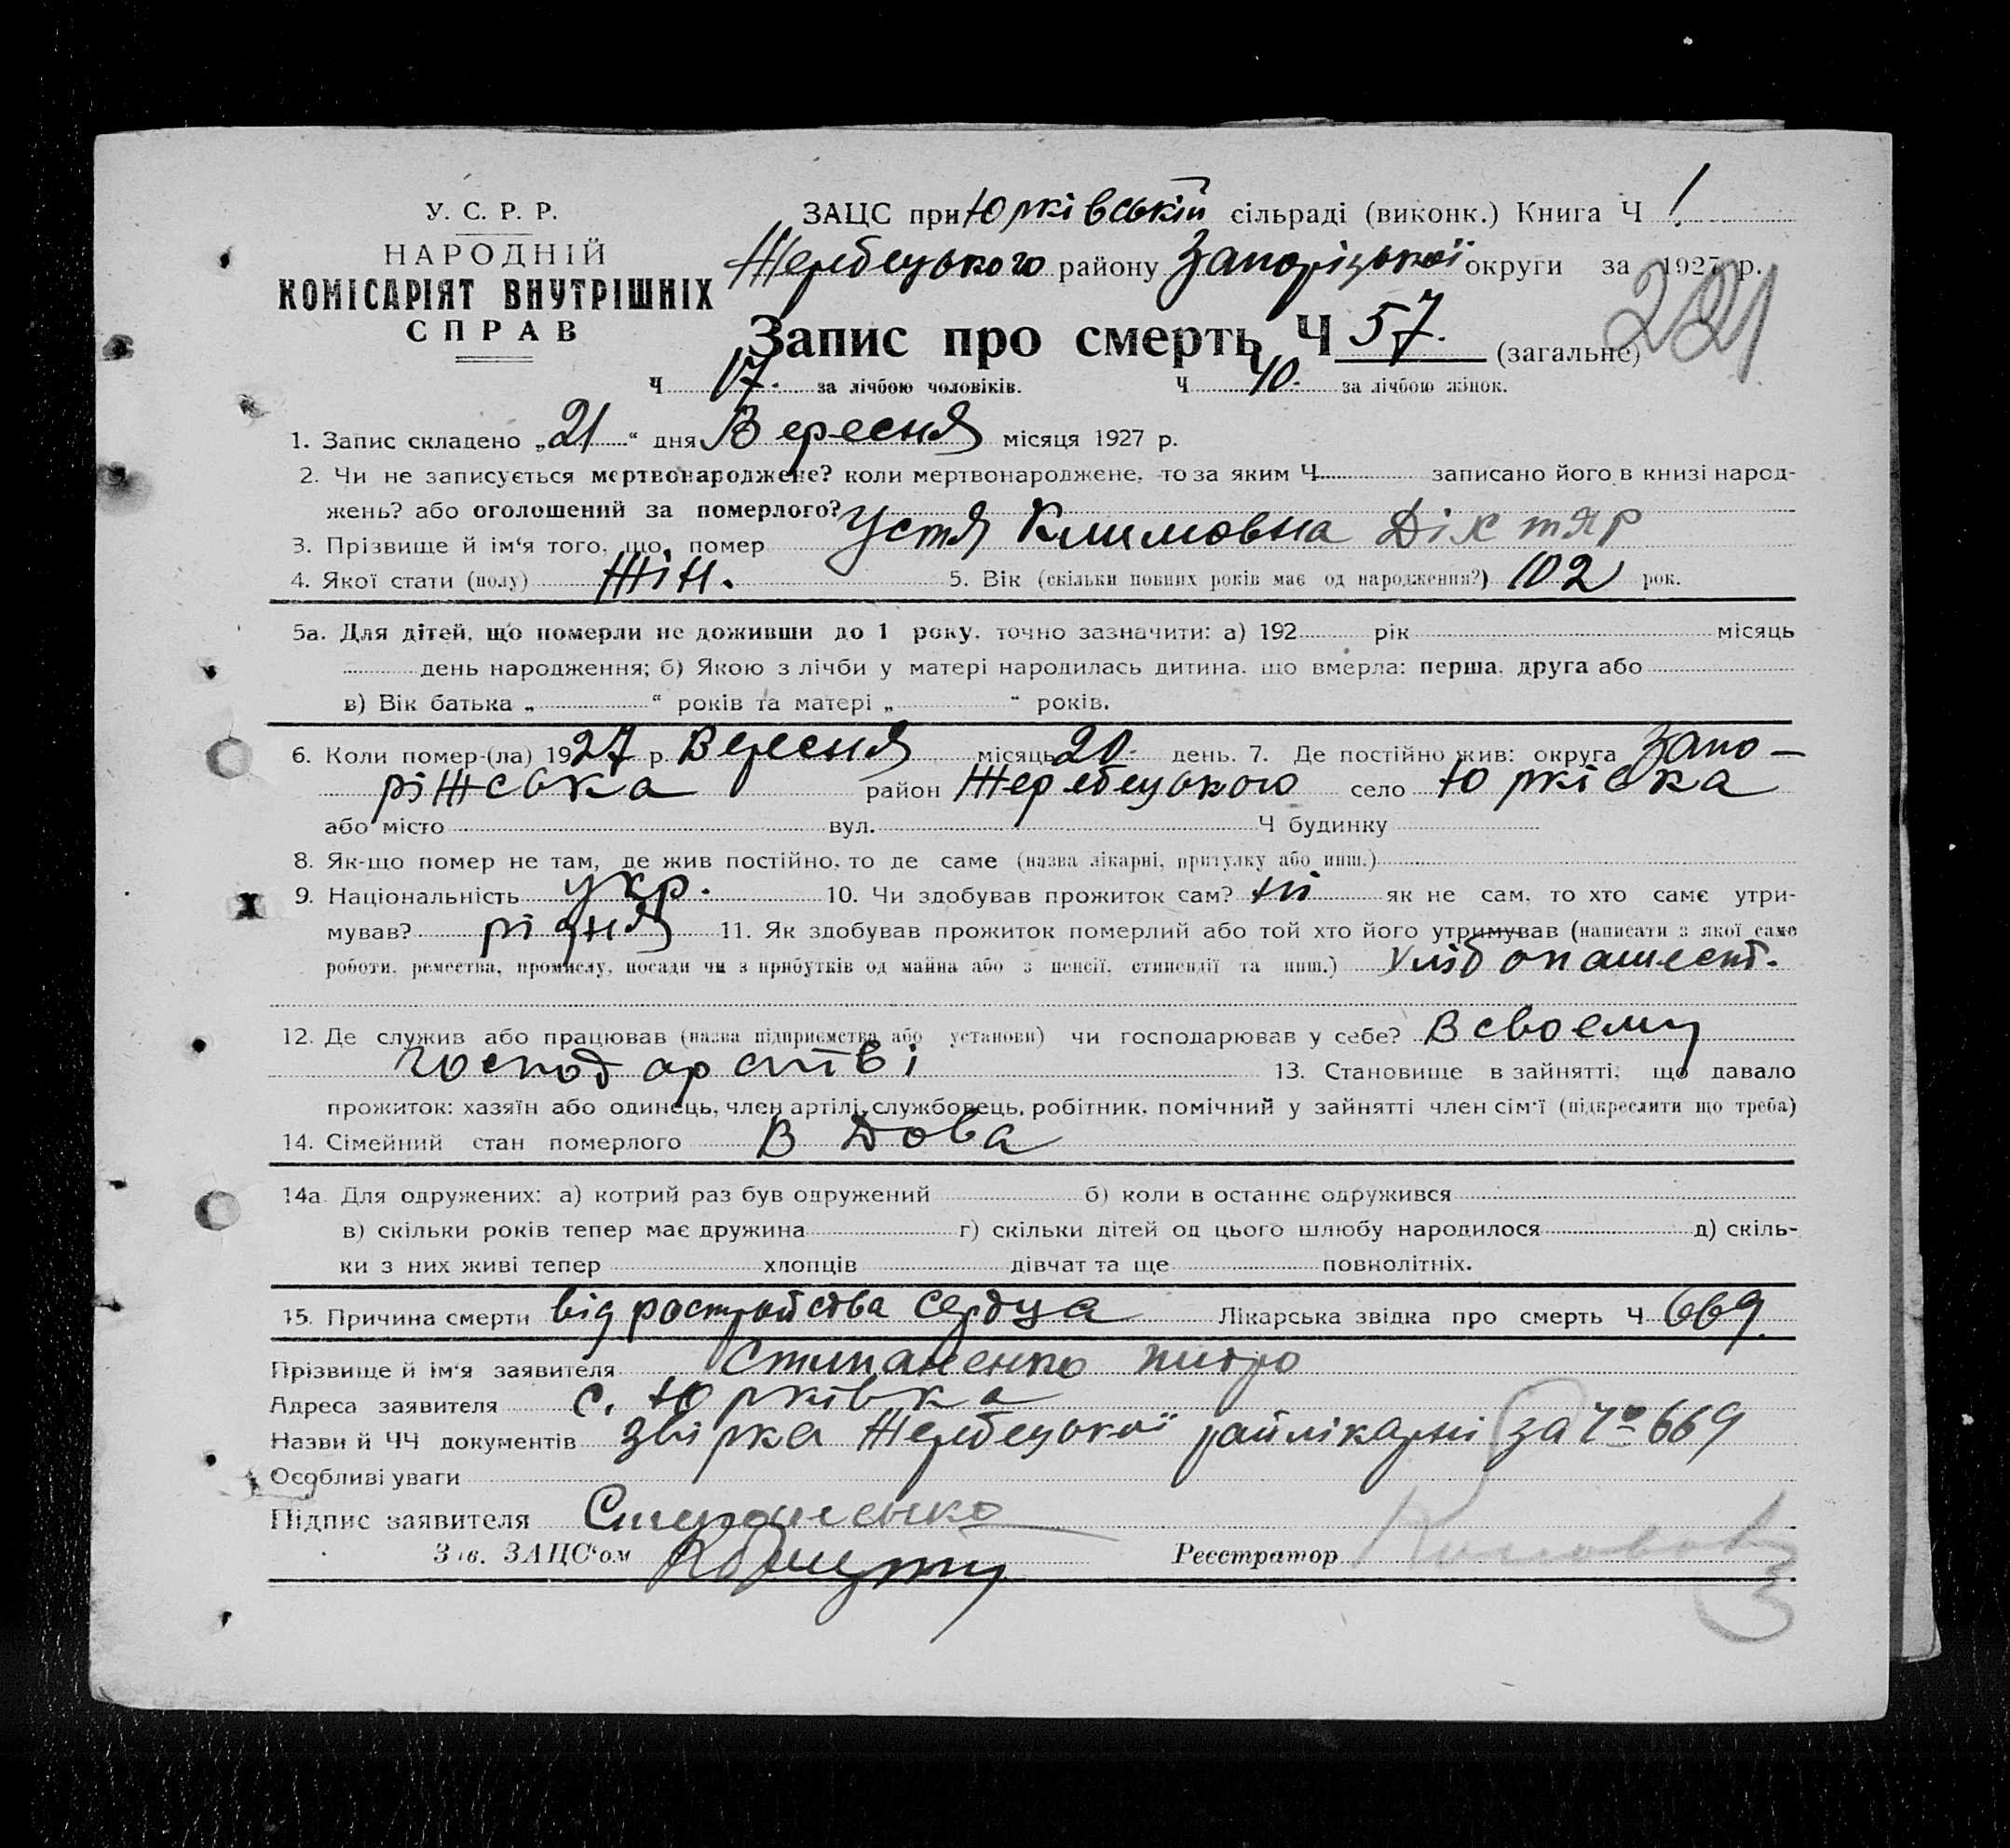 У. С. Р. Р.
НАРОДНІЙ
КОМІСАРІЯТ ВНУТРІШНІХ
СПРАВ
ЗАЦС при Юрківській сільраді (виконк.) Книга Ч 1
Жеребецького району Запоріцької округи за 1927 р.
221
Запис про смерть Ч 57. (загальне)
Ч 17. за лічбою чоловіків. Ч 40. за лічбою жінок.
1. Запис складено „21“ дня Вересня місяця 1927 р.
2. Чи не записується мертвонароджене? коли мертвонароджене, то за яким Ч записано його в книзі народ-
жень? або оголошений за померлого?
3. Прізвище й ім‘я того, що помер Устя Климовна Діктяр
4. Якої стати (полу) Жін. 5. Вік (скільки повних років має од народження?) 102 рок.
5а. Для дітей, що померли не доживши до 1 року, точно зазначити: а) 192 рік місяць
день народження; б) Якою з лічби у матері народилась дитина, що вмерла: перша, друга або
в) Вік батька „ “ років та матері „ “ років.
6. Коли помер-(ла) 1927 р. Вересня місяць 20 день. 7. Де постійно жив: округа Запо-
ріжська район Жеребецького село Юрківка
або місто вул. Ч будинку
8. Як-що помер не там, де жив постійно, то де саме (назва лікарні, притулку або инш.)
9. Національність укр. 10. Чи здобував прожиток сам? ні як не сам, то хто саме утри-
мував? рідня 11. Як здобував прожиток померлий або той хто його утримував (написати з якої саме
роботи, ремества, промислу, посади чи з прибутків од майна або з пенсії, стипендії та инш.) хлібопашест.
12. Де служив або працював (назва підприємства або установи) чи господарював у себе? В своему
господарстві 13. Становище в зайнятті, що давало
прожиток: хазяїн або одинець, член артілі, службовець, робітник, помічний у зайнятті член сім‘ї (підкреслити що треба)
14. Сімейний стан померлого Вдова
14а Для одружених: а) котрий раз був одружений б) коли в останнє одружився
в) скільки років тепер має дружина г) скільки дітей од цього шлюбу народилося д) скіль-
ки з них живі тепер хлопців дівчат та ще повнолітніх.
15. Причина смерти від ростройства сердца Лікарська звідка про смерть Ч 669.
Прізвище й ім‘я заявителя Стипаненко
Адреса заявителя с. Юрківка
Назви й ЧЧ документів Жеребецької райлікарні за № 669
Особливі уваги
Підпис заявителя
Зав. ЗАЦС‘ом
Реєстратор